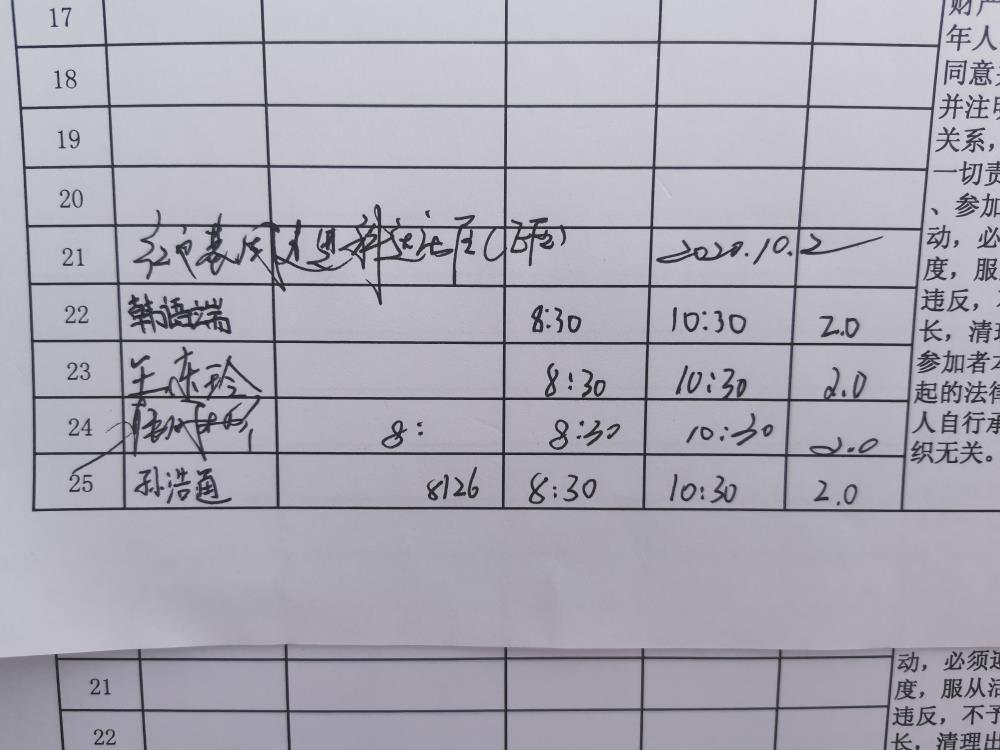 17
18
19
20
21 2020.10.2
22 韩语端 8:30 10:30 2.0
23 8:30 10:30 2.0
24 8: 8:30 10:30 2.0
25 孙浩通 8126 8:30 10:30 2.0
年人
同意
并注明
关系，
一切责
、参加
动，必
度，服
违反，
长，清理
参加者本
起的法律
人自行承
织无关。
21
22
动，必须
度，服从活
违反，不予
长，清理出